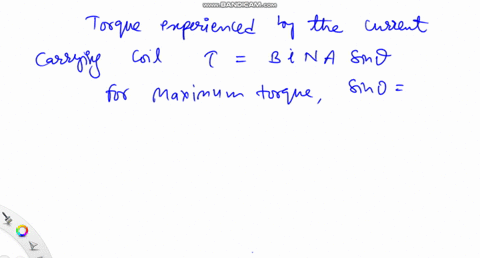 www.BANDICAM.com
Torque experienced by the current
carrying coil τ = B i N A Sinθ
for maximum torque, Sinθ =